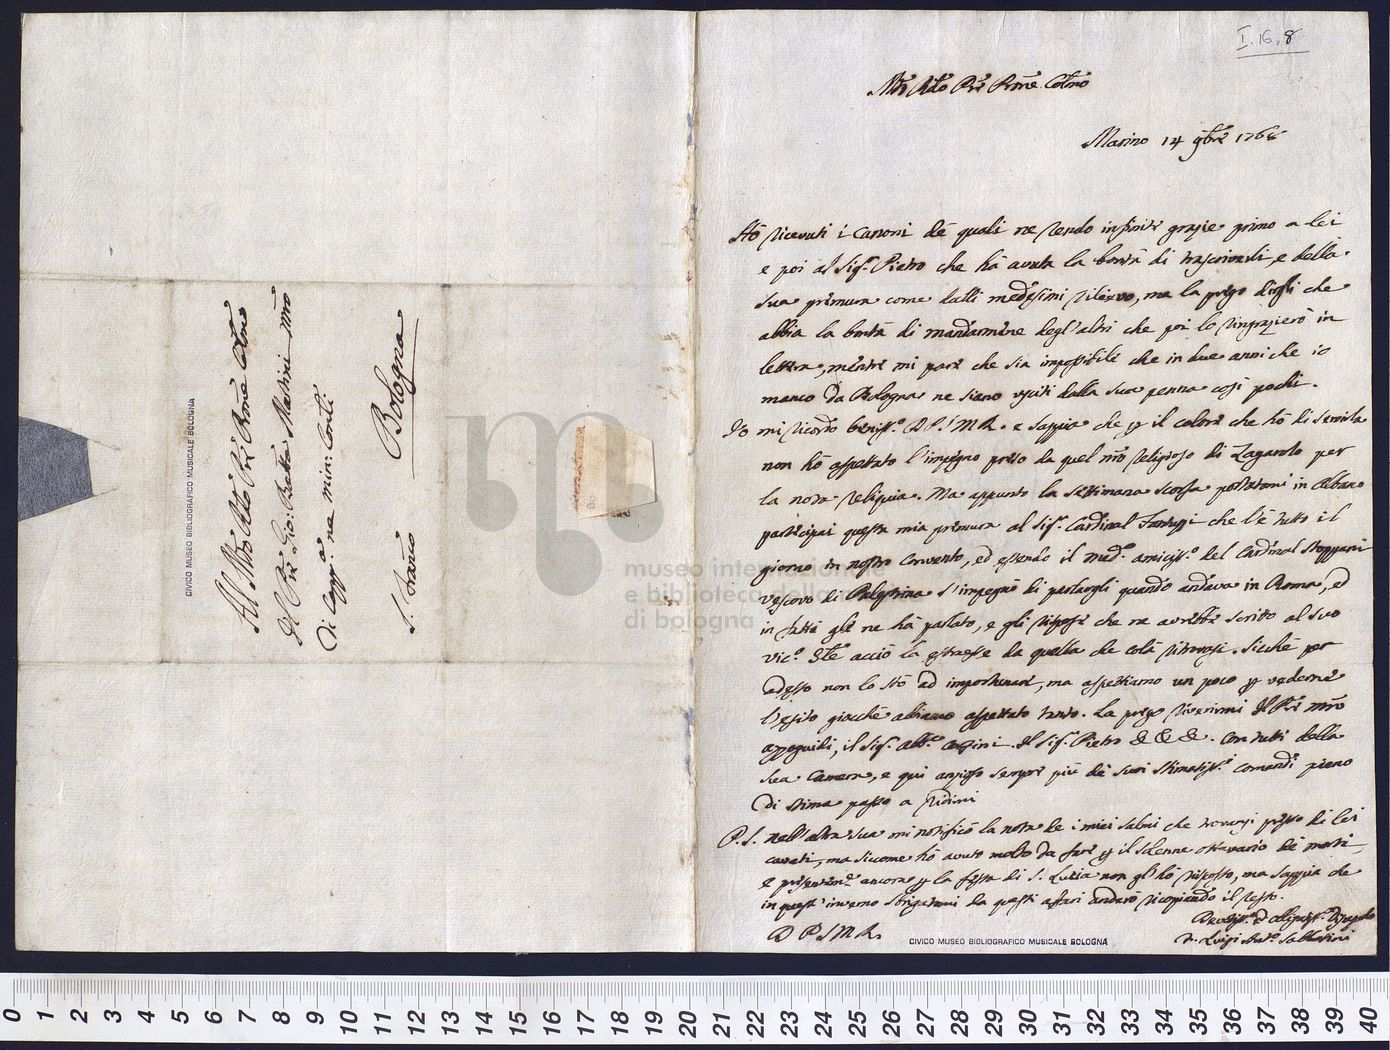 I.16.8
Mto Rdo Pre Prōne Colmo
Marino 14 9bre 1766
Hò ricevuti i canoni de quali ne rendo infinite grazie primo a lei
e poi al Sigr. Pietro che hà avuta la bontà di trascriverli, e della
sua premura come dalli medesimi rilevo, ma la prego dirgli che
abbia la bontà di mandarmene degl'altri che poi lo ringrazierò in
lettera, mentre mi pare che sia impossibile che in due anni che io
manco da Bologna ne siano usciti dalla sua penna così pochi.
Io mi ricordo beniss.o D P. S. M R. e sappia che p il calore che hò di servirla
non hò aspettato l'impegno preso da quel nro religioso di Zagarolo per
la nota reliquia. Ma appunto la settimana scorsa portatomi in Albano
partecipai questa mia premura al Sigr. Cardinal Fantuzzi che l'è tutto il
giorno in nostro convento, ed essendo il med.o amiciss.o del Cardinal Stoppani
vescovo di Palestrina s'impegnò di parlargli quando andava in Roma, ed
in fatti glie ne hà parlato, e gli rispose che ne avrebbe scritto al suo
vic.o Gle acciò la estraesse da quella che colà ritrovasi. Sicchè per
adesso non lo stò ad importunare, ma aspettiamo un poco p vederne
l'esito giacchè abbiamo aspettato tanto. La prego riverirmi il Pre Mro
il Sigr. Abb.e il Sigr. Pietro &c &c &c. con tutti della
sua Camera, e qui ansioso sempre più de suoi stimatiss.i comandi pieno
di stima passo a ridirmi
P. S. nell'altra sua mi notificò la nota de i miei salmi che trovansi presso di lei
cavati, ma siccome hò avuto molto da fare p il solenne ottavario de morti
e presentem.e ancora p la festa di S. Lucia non gl'hò risposto, ma sappia che
in quest'inverno sbrigatomi da questi affari anderò ricopiando il resto.
D P S M R.
Devotiss.o ed obligatiss.o
Fr. Luigi Ant.o Sabbatini
CIVICO MUSEO BIBLIOGRAFICO MUSICALE BOLOGNA
Al Mto Rdo Pre Prōne Colmo
Il Pre Gio: Batta Martini Mro
di Capp.a ne min: Conti
S. Franco
Bologna
CIVICO MUSEO BIBLIOGRAFICO MUSICALE BOLOGNA
museo internazionale
e biblioteca della
di bologna
0 1 2 3 4 5 6 7 8 9 10 11 12 13 14 15 16 17 18 19 20 21 22 23 24 25 26 27 28 29 30 31 32 33 34 35 36 37 38 39 40